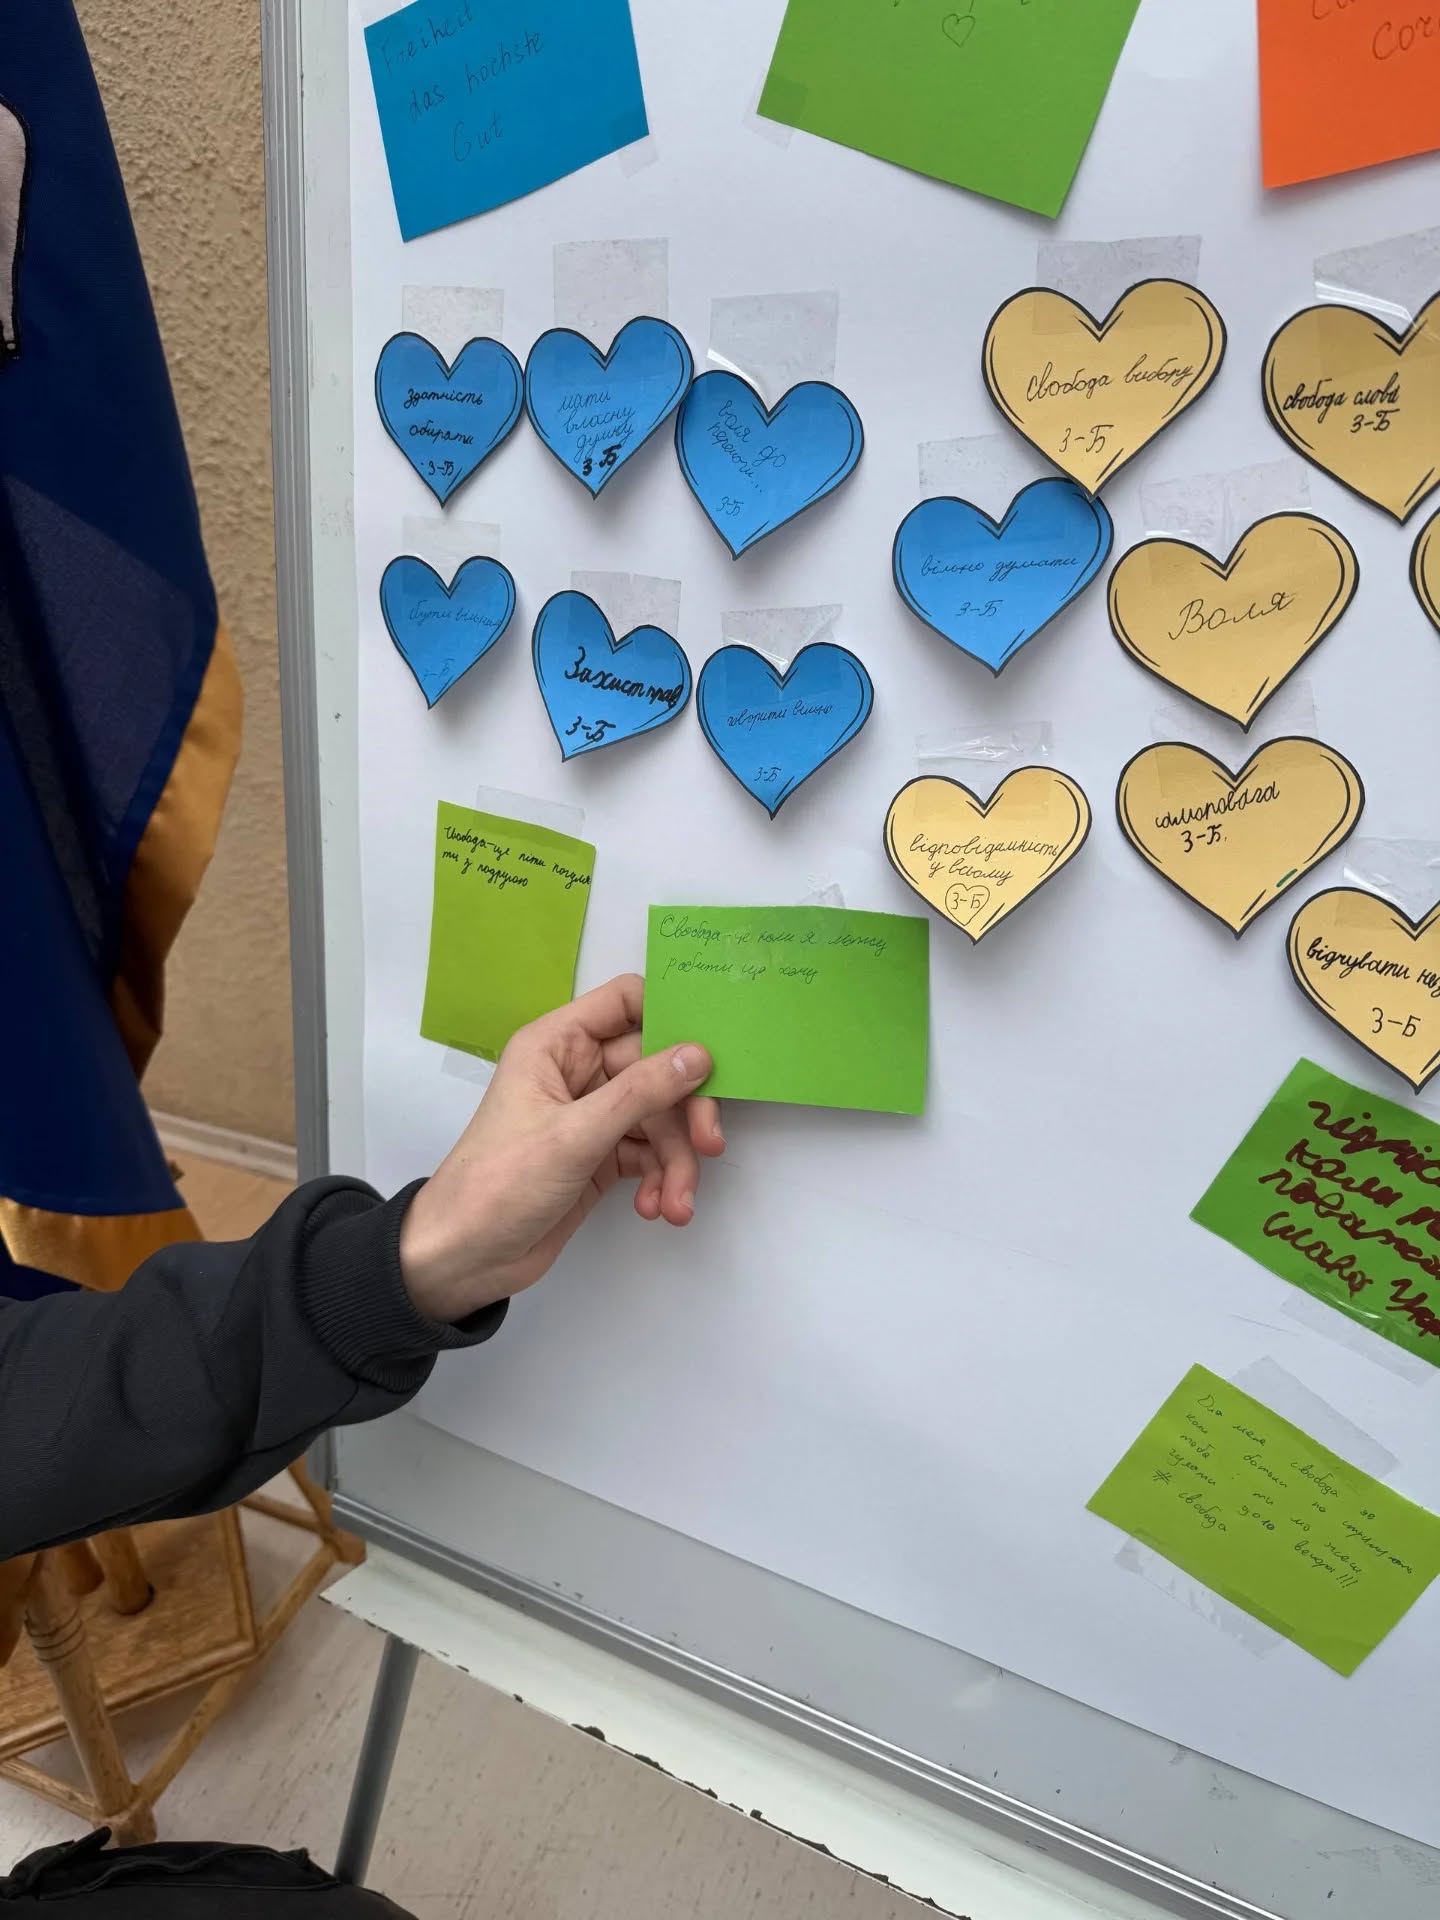 Freiheit
das höchste
Gut
Здатність
обирати
3-Б
мати
власну
думку
3-Б
воля до
перемоги...
3-Б
свобода вибору
3-Б
свобода слова
3-Б
бути вільним
3-Б
Захист прав
3-Б
говорити вільно
3-Б
вільно думати
3-Б
Воля
відповідамність
у всьому
3-Б
самоповага
3-Б.
відчувати
3-Б
Свобода-це піти погуля
ти з подругою
Свобода-це коли я можу
робити що хочу
коли
слава
Для мене свобода це
коли батьки не
тебе
гуляти
# свобода